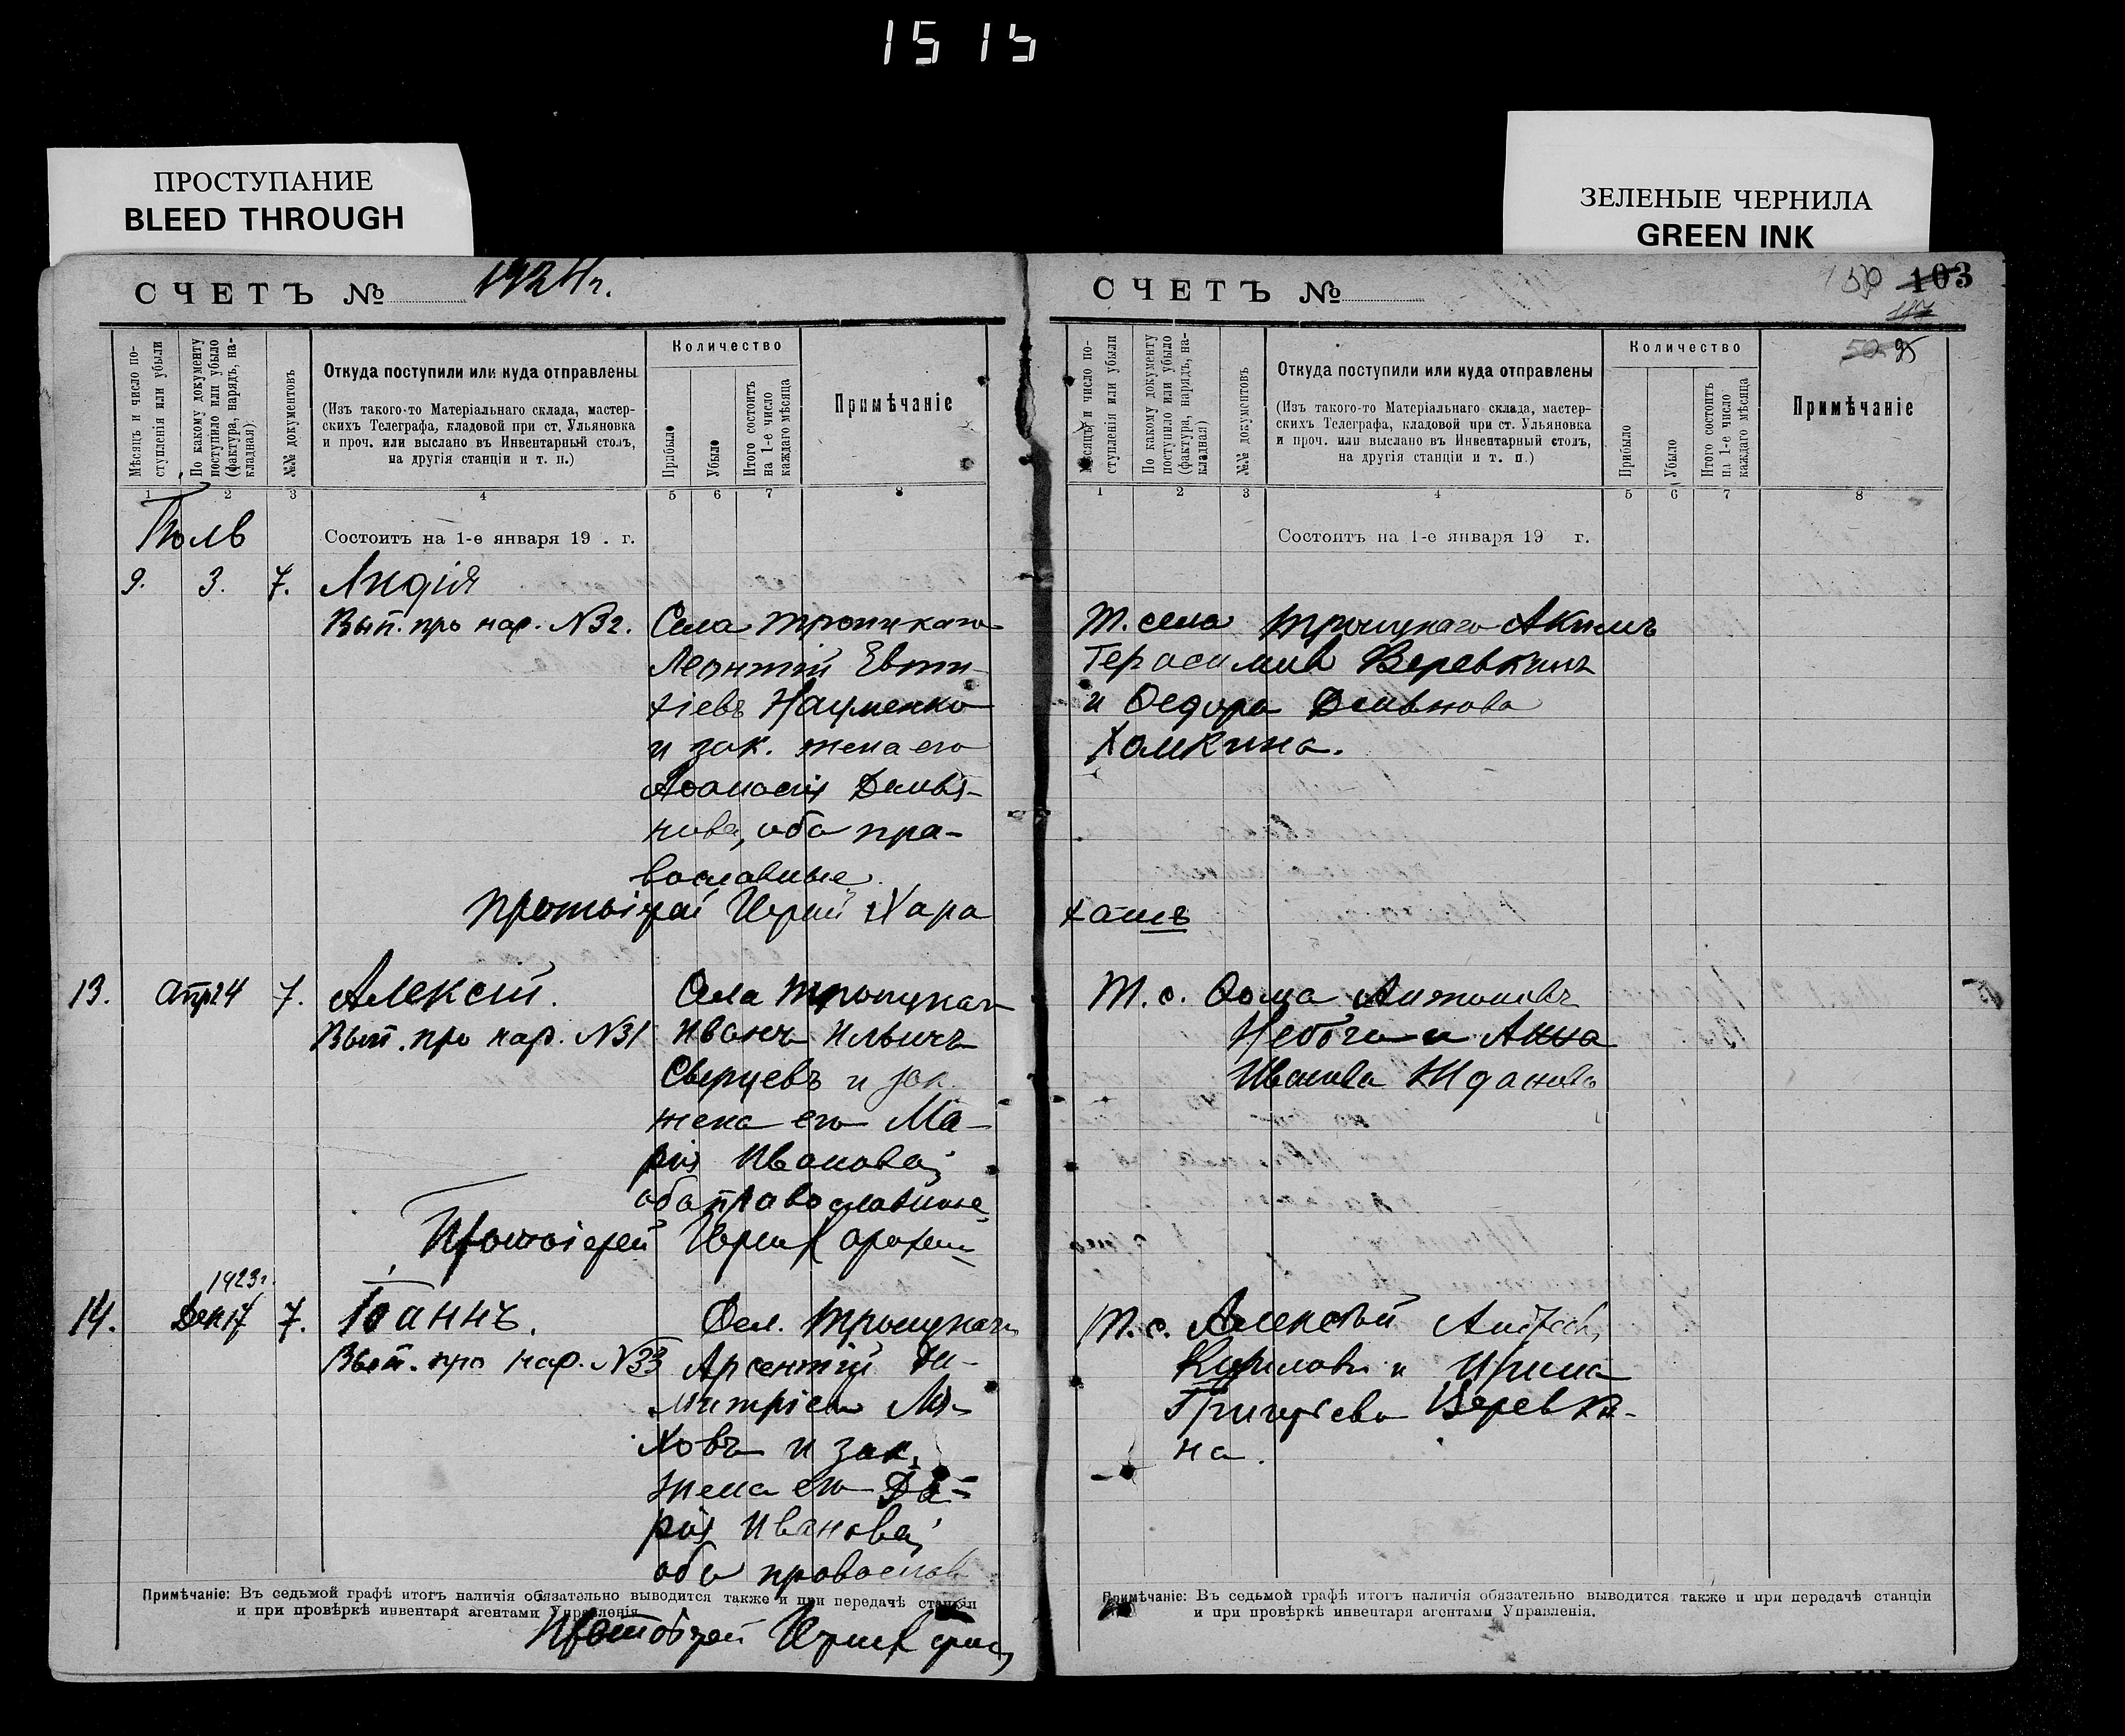 1515
ПРОСТУПАНИЕ
BLEED THROUGH
ЗЕЛЕНЫЕ ЧЕРНИЛА
GREEN INK
СЧЕТЪ № 1924 г.
Мѣсяцъ и число поступленія или убыли
По какому документу поступило или убыло (фактура, нарядъ, накладная)
№№ документовъ
Откуда поступили или куда отправлены
(Изъ такого-то Матеріальнаго склада, мастер-
скихъ Телеграфа, кладовой при ст. Ульяновка
и проч. или выслано въ Инвентарный столъ,
на другія станціи и т. п.)
Количество
Прибыло
Убыло
Итого состоитъ на 1-е число каждаго мѣсяца
Примѣчаніе
1 2 3 4 5 6 7 8
Состоитъ на 1-е января 19 . г.
9. 3. 7. Лидія
Вып. про нар. №32. Села Троицкаго
Леонтій Евти-
хіевъ Науменко
и зак. жена его
Афанасія Демья-
нова, оба пра-
вославные
Протоіерей Юрій Хара
13. Апр 24 7. Алексій. Села Троицкаго
Вып. про нар. №31 Иванъ Ильичъ
и зак.
жена его Ма-
рія Иванова,
оба православные
Протоіерей
1923г.
14. Дек 17 7. Іоаннъ. Сел. Троицкаго
Вып. про нар. №33 Арсентій Ди-
митріевъ Ля-
ховъ и зак.
жена его Да-
рія Иванова,
оба православ
Примѣчаніе: Въ седьмой графѣ итогъ наличія обязательно выводится также и при передачѣ станціи
и при провѣркѣ инвентаря агентами Управленія.
Протоіерей
СЧЕТЪ №
103
95
Мѣсяцъ и число поступленія или убыли
По какому документу поступило или убыло (фактура, нарядъ, накладная)
№№ документовъ
Откуда поступили или куда отправлены
(Изъ такого-то Матеріальнаго склада, мастер-
скихъ Телеграфа, кладовой при ст. Ульяновка
и проч. или выслано въ Инвентарный столъ,
на другія станціи и т. п.)
Количество
Прибыло
Убыло
Итого состоитъ на 1-е число каждаго мѣсяца
Примѣчаніе
1 2 3 4 5 6 7 8
Состоитъ на 1-е января 19 г.
т. села Троицкаго Акимъ
Герасимовъ Веревкинъ
и Ѳедора Демьянова
Хомкина.
хашъ
Т. с. Ѳома Антоновъ
и Анна
Иванова Жданова
Т. с. Алексѣй
Кириловъ и Ирина
Григорьева Веревки-
на.
Примѣчаніе: Въ седьмой графѣ итогъ наличія обязательно выводится также и при передачѣ станціи
и при провѣркѣ инвентаря агентами Управленія.